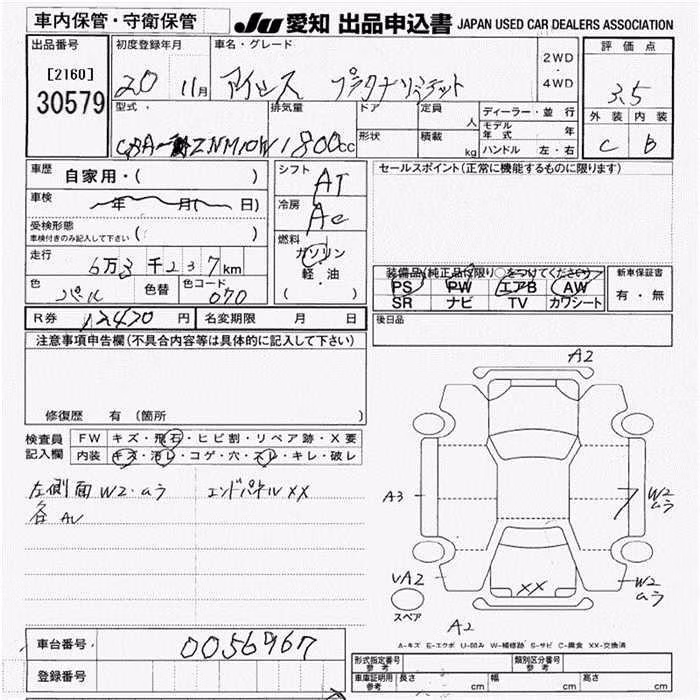 車内保管・守衛保管
JU 愛知 出品申込書 JAPAN USED CAR DEALERS ASSOCIATION
出品番号 初度登録年月 車名・グレード 2WD ・ 4WD 評価点
[2160] 20 11月 アイシス プラタナリミテッド 3.5
30579
型式 排気量 ドア 定員 人 ディーラー・並行 外装 内装
CBA-ZNM10W 1800cc 形状 積載 kg モデル年式 年 C B
ハンドル 左・右
車歴 自家用・( ) シフト AT セールスポイント(正常に機能するものに限ります)
車検 年 月( 日) 冷房 AC
受検形態 車検付きのみ記入して下さい ( )
走行 6万3千237km 燃料 ガソリン 軽・油 ( )
装備品(純正品に限り○をつけてください) 新車保証書
色 パール 色替 色コード 070
PS PW エアB AW 有・無
SR ナビ TV カワシート
R券 12420円 名変期限 月 日 後日品
注意事項申告欄(不具合内容等は具体的に記入して下さい)
修復歴 有 (箇所 )
検査員記入欄 FW キズ・飛石・ヒビ割・リペア跡・X要
内装 キズ・汚レ・コゲ・穴・スレ・キレ・破レ
左側面W2・ムラ エンドパネルXX
各AU
A2
A3
W2
ムラ
VA2
W2
ムラ
XX
スペア
A2
A-キズ E-エクボ U-凹み W-補修跡 S-サビ C-腐食 XX-交換済
車台番号 0056967
登録番号
形式指定番号 参考 類別区分番号 参考
車庫証明用 参考 長さ cm 幅 cm 高さ cm